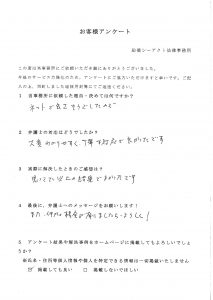 お客様アンケート
船橋シーアクト法律事務所
この度は当事務所にご依頼いただき誠にありがとうございました。
今後のサービス向上のため、アンケートにご協力いただけますと幸いです。ご記
入の上、同封しました返信用封筒にてご返送ください。
1 当事務所に依頼した理由・決めては何ですか?
ネットで良さそうでしたので
2 弁護士の対応はどうでしたか?
大変わかりやすく、丁寧な対応でたすかったです
3 実際に解決したときのご感想は?
思っていた以上の結果でよかったです
4 最後に、弁護士へのメッセージをお願いします!
また、何か相談が有りましたらよろしく!
5 アンケート結果や解決事例をホームページに掲載してもよろしいでしょ
うか?
※氏名・住所等個人情報や個人を特定できる情報は一切掲載いたしません
掲載しても良い 掲載しないでほしい